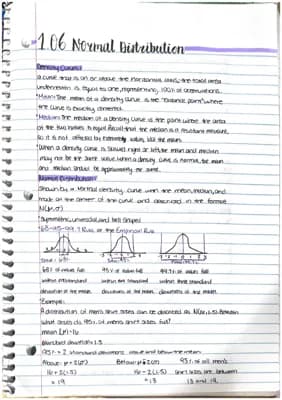 1.06 Normal Distribution
Density Curves
a curve that is on or above the horizontal axis, the total area
underneath is equal to one, representing 100% of observations.
*Mean: The mean of a density curve is the "balance point" where
the curve is exactly centered.
*Median: The median of a density curve is the point where the area
of the two halves is equal. Recall that the median is a resistant measure,
so it is not affected by extremely values, like the mean.
*When a density curve is skewed right or left the mean and median
may not be the same value. When a density curve is normal, the mean
and median should be approximately the same.
Normal Distribution
shown by a Normal density curve with the mean, median, and
mode at the center of the curve and described in the format
N(μ,σ)
*Symmetric, unimodal, and bell shaped
*68-95-99.7 Rule or the Empirical Rule
68% of values fall 95% of values fall 99.7% of values fall
within one standard within two standard within three standard
deviation of the mean deviations of the mean deviations of the mean
*Example:
A distribution of men's shirt sizes can be described as N(16,1.5). Between
what sizes do 95% of men's shirt sizes fall?
mean (μ)=16
standard deviation=1.5
95% = 2 standard deviations above and below the mean
Above: μ+2(σ) Below: μ-2(σ) 95% of all men's
16+2(1.5) 16-2(1.5) shirt sizes are between
=19 =13 13 and 19.